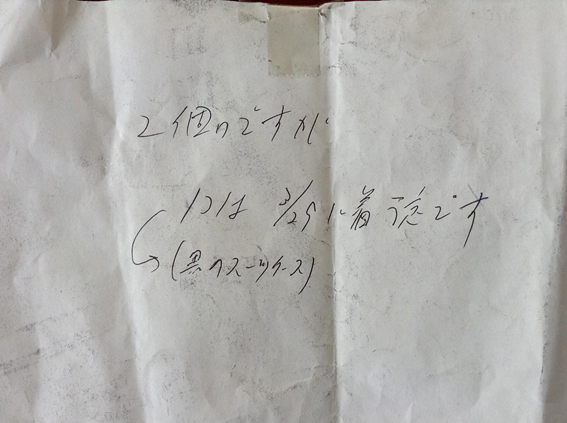 2個のですが
1つは 3/29に着予定です
(黒のスーツケース)